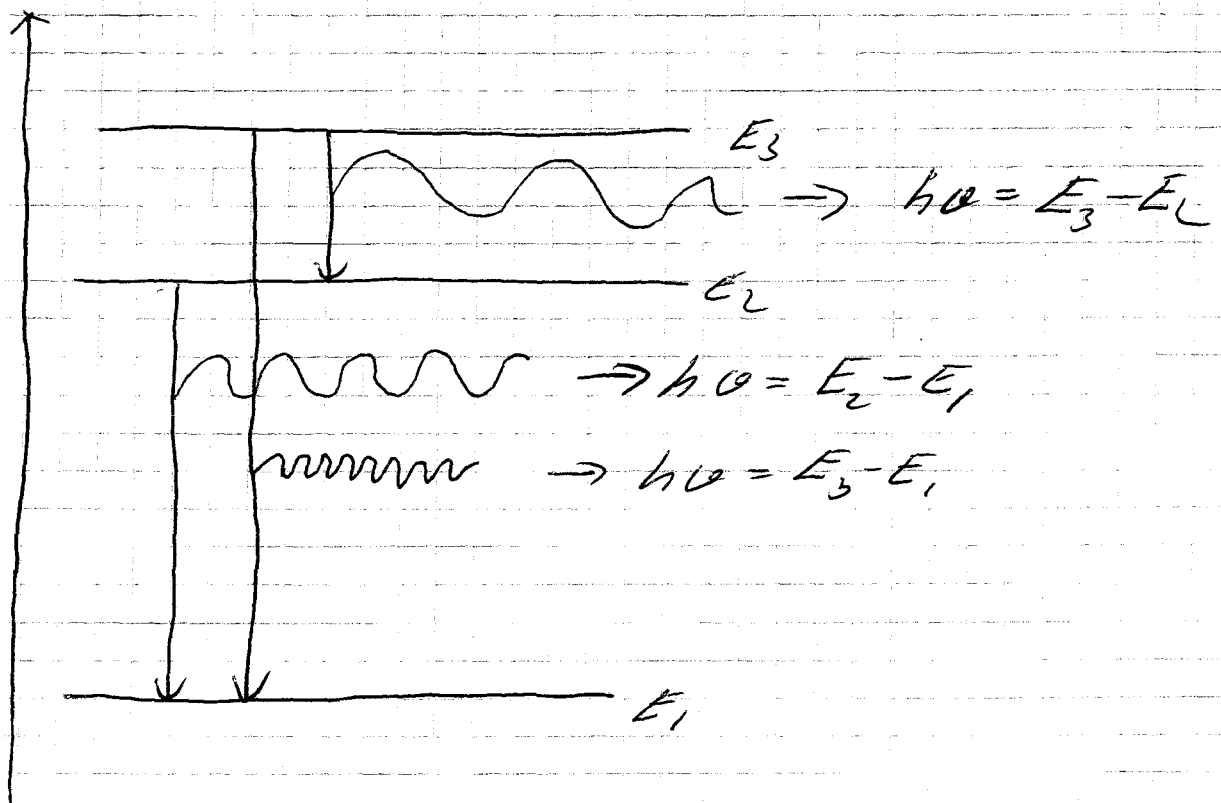 E₃
→ hν = E₃ - E₂
E₂
→ hν = E₂ - E₁
→ hν = E₃ - E₁
E₁